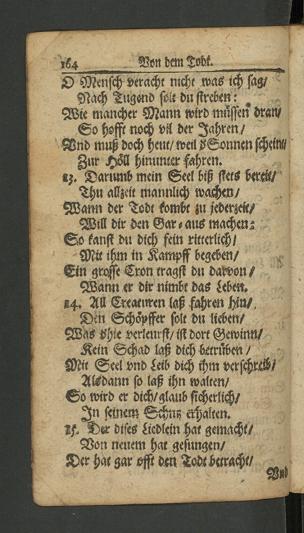 164 Von dem Todt.
O Mensch veracht nicht was ich sag/
Nach Tugend solt du streben:
Wie mancher Mann wird müssen dran/
So hofft noch vil der Jahren/
Vnd muß doch heut/ weil d'Sonnen scheint/
Zur Höll hinunter fahren.
13. Darumb mein Seel biß stets bereit/
Thu allzeit mannlich wachen/
Wann der Todt kombt zu jederzeit/
Will dir den Gar-aus machen:
So kanst du dich fein ritterlich/
Mit ihm in Kampff begeben/
Ein grosse Cron tragst du darvon/
Wann er dir nimbt das Leben.
14. All Creaturen laß fahren hin/
Den Schöpffer solt du lieben/
Was d'hie verleurst/ ist dort Gewinn/
Kein Schad laß dich betrüben/
Mit Seel vnd Leib dich ihm verschreib/
Alsdann so laß ihn walten/
So wird er dich/ glaub sicherlich/
In seinem Schutz erhalten.
15. Der dises Liedlein hat gemacht/
Von neuem hat gesungen/
Der hat gar offt den Todt betracht/
Vnd